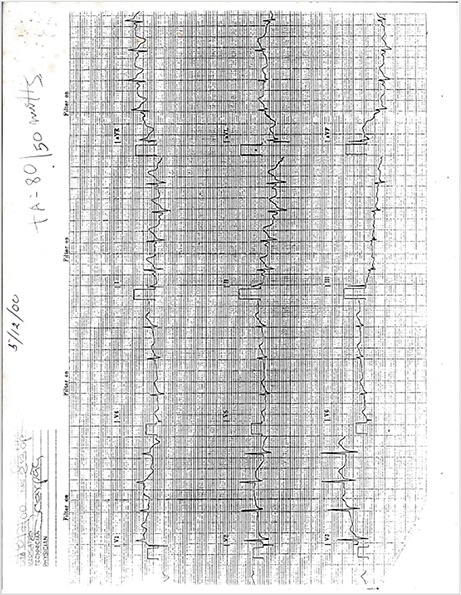 TA=80/50 mmHg
5/12/00
TECHNICIAN
PHYSICIAN
Filter on
Filter on
Filter on
Filter on
aVR
aVL
aVF
I
II
III
V4
V5
V6
V1
V2
V3